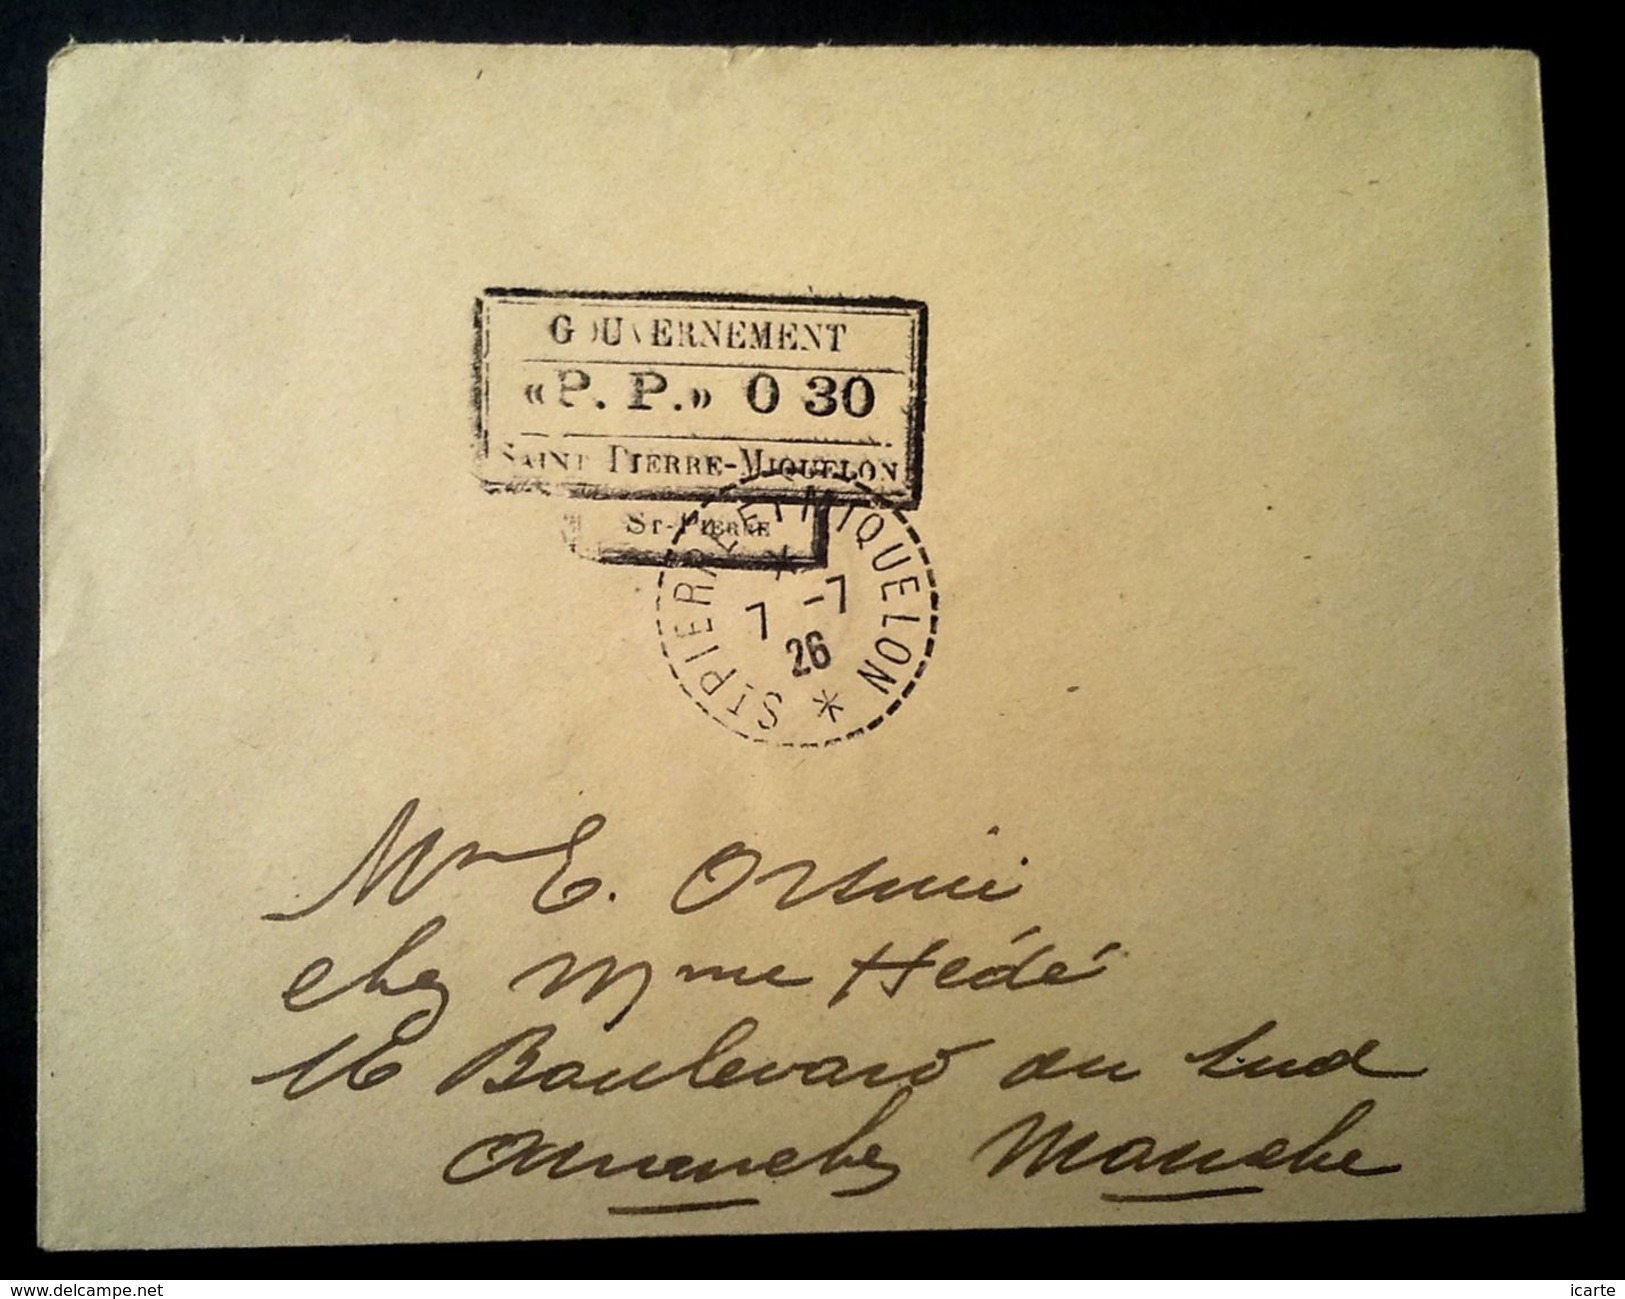 GOUVERNEMENT
«P. P.» 0 30
SAINT PIERRE-MIQUELON
ST-PIERRE
ST PIERRE ET MIQUELON
7 -7
26
Mr E. Orsini
chez Mme Hédé
16 Boulevard du Sud
Avranches Manche
delcampe.net
icarte